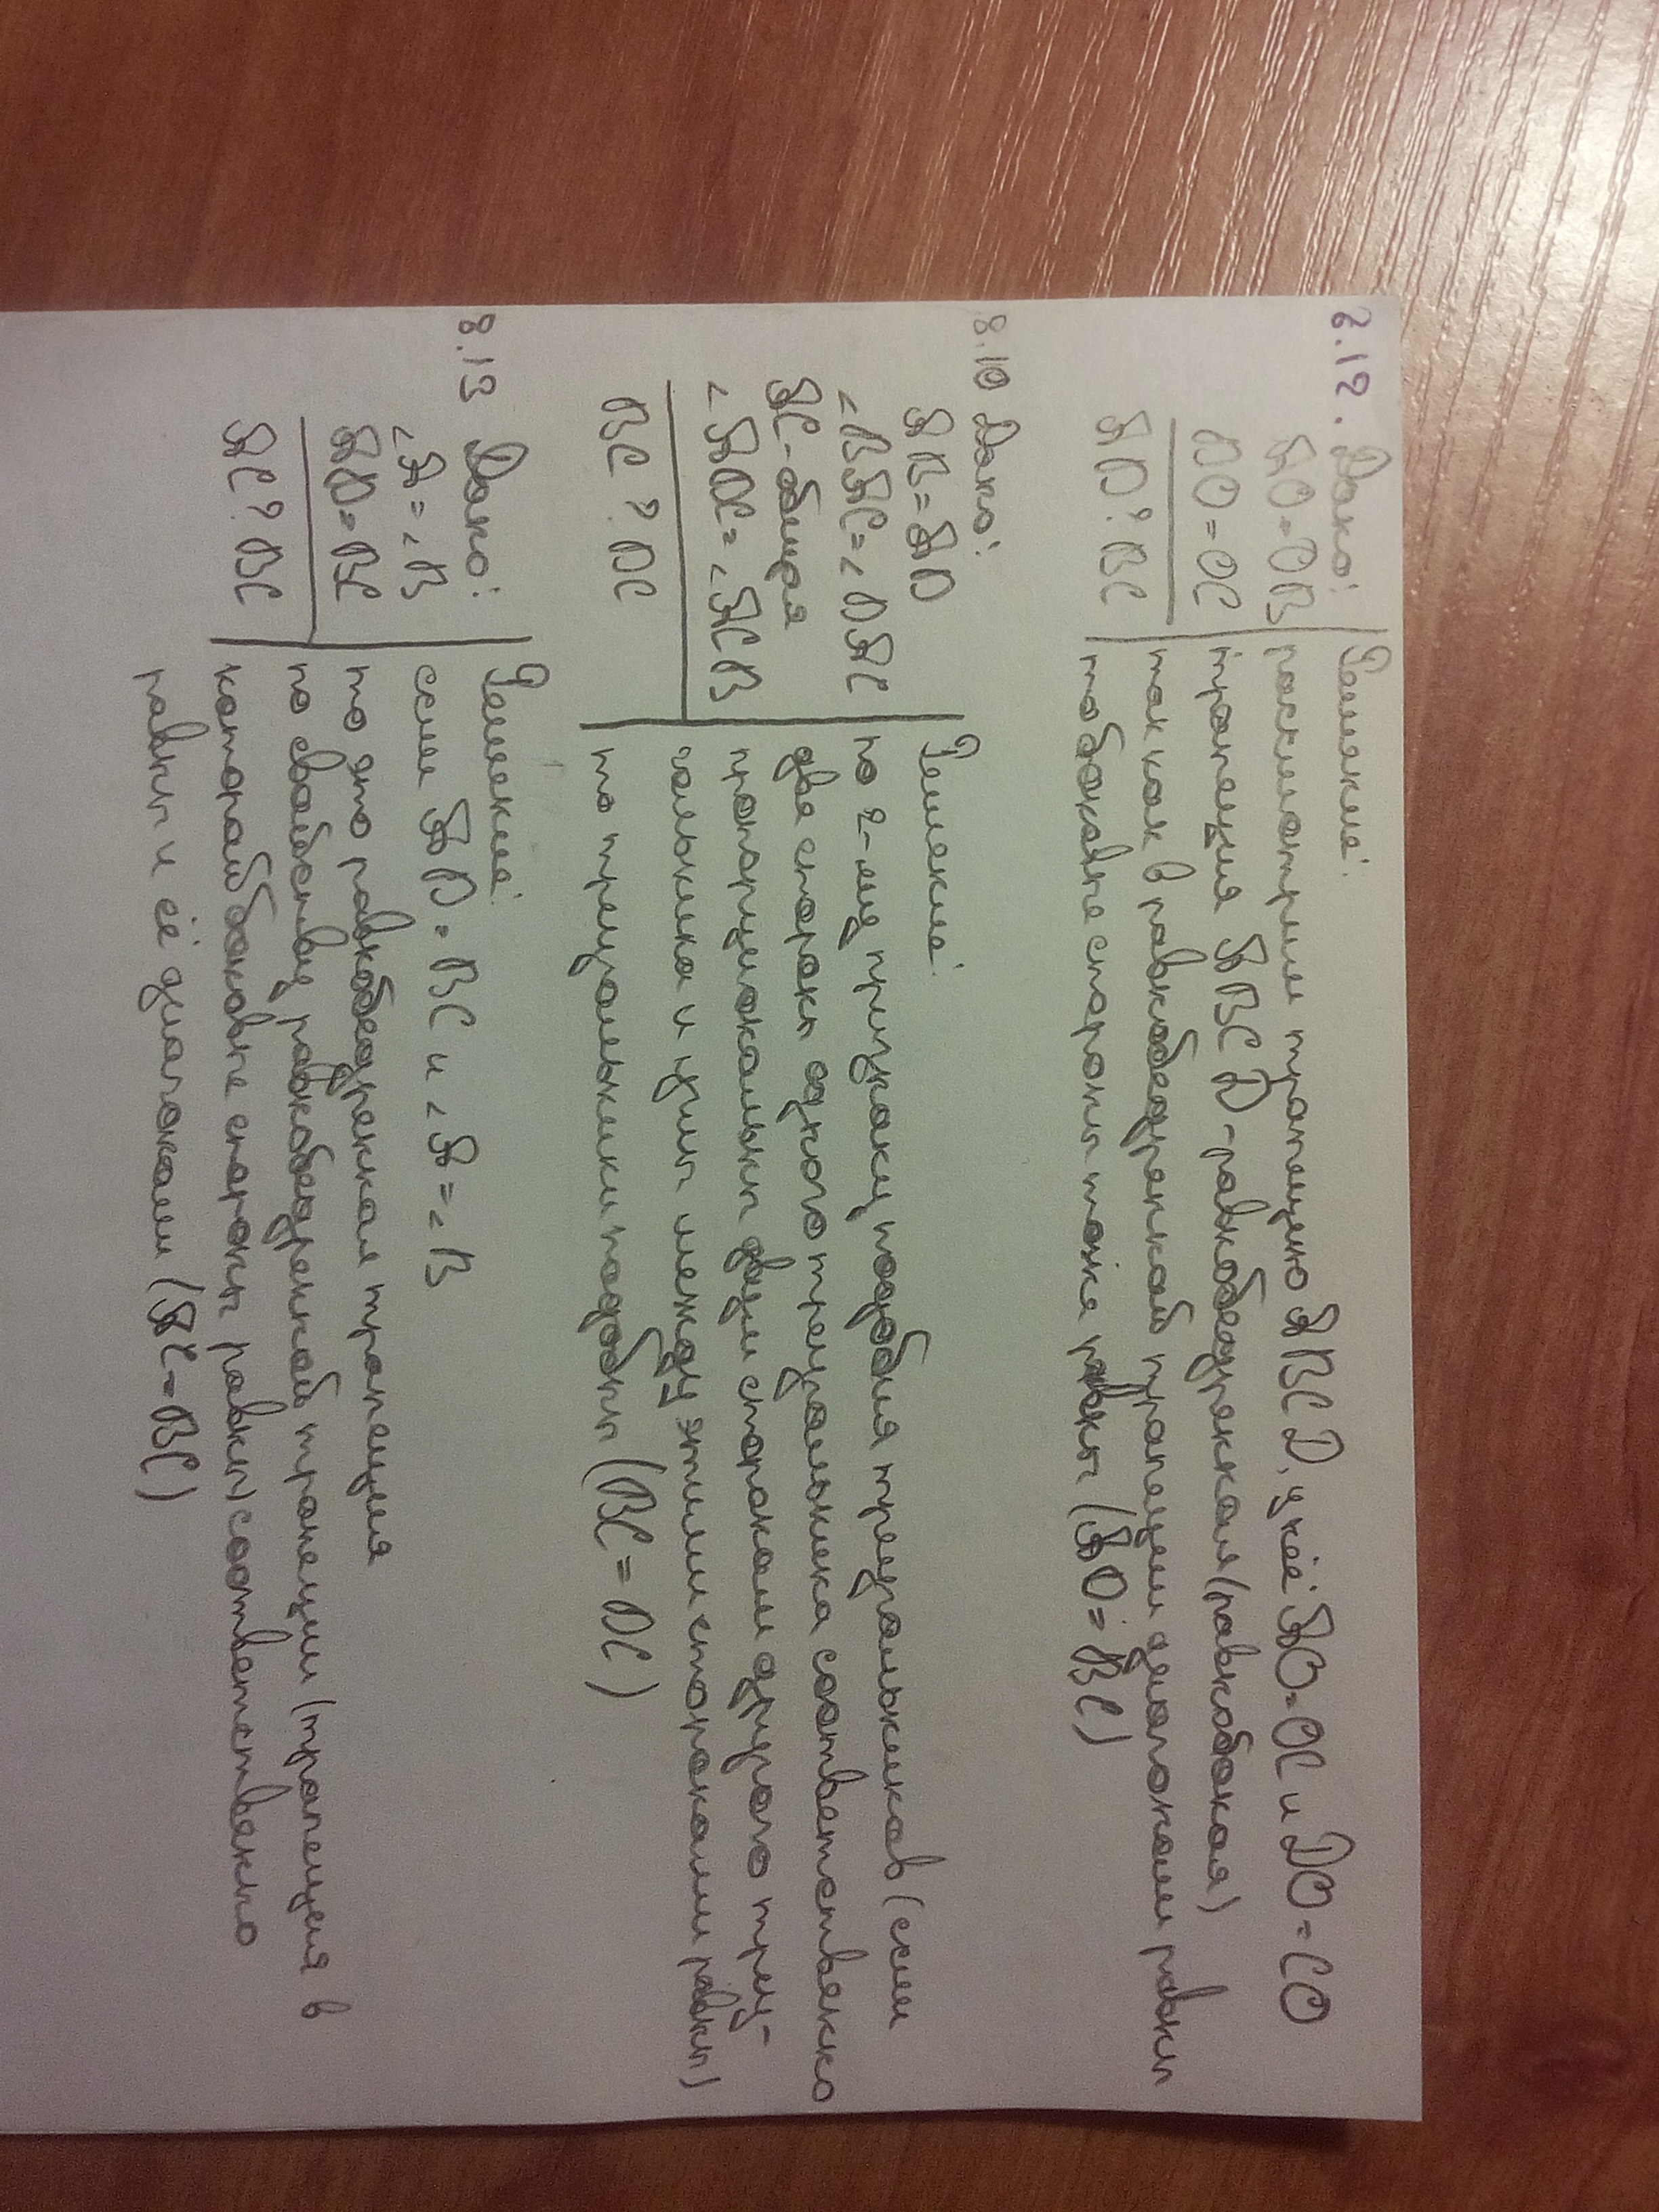 8.12. Дано:
AO=OB
DO=OC
AD ? BC
Решение:
рассмотрим трапецию ABCD, у неё AO=OC и DO=CO
трапеция ABCD-равнобедренная (равнобокая)
так как в равнобедренной трапеции диагонали равны
то боковые стороны тоже равны (AD=BC)
8.10 Дано:
AB=AD
∠BAC=∠DAC
AC-общая
∠ADC=∠ACB
BC ? DC
Решение:
по 2-му признаку подобия треугольников (если
две стороны одного треугольника соответственно
пропорциональны двум сторонам другого треу-
гольника и углы между этими сторонами равны)
то треугольники подобны (BC=DC)
8.13 Дано:
∠A=∠B
AD=BC
AC ? BC
Решение:
если AD=BC и ∠A=∠B
то это равнобедренная трапеция
по свойству равнобедренной трапеции (трапеция в
которой боковые стороны равны) соответственно
равны и её диагонали (AC=BC)